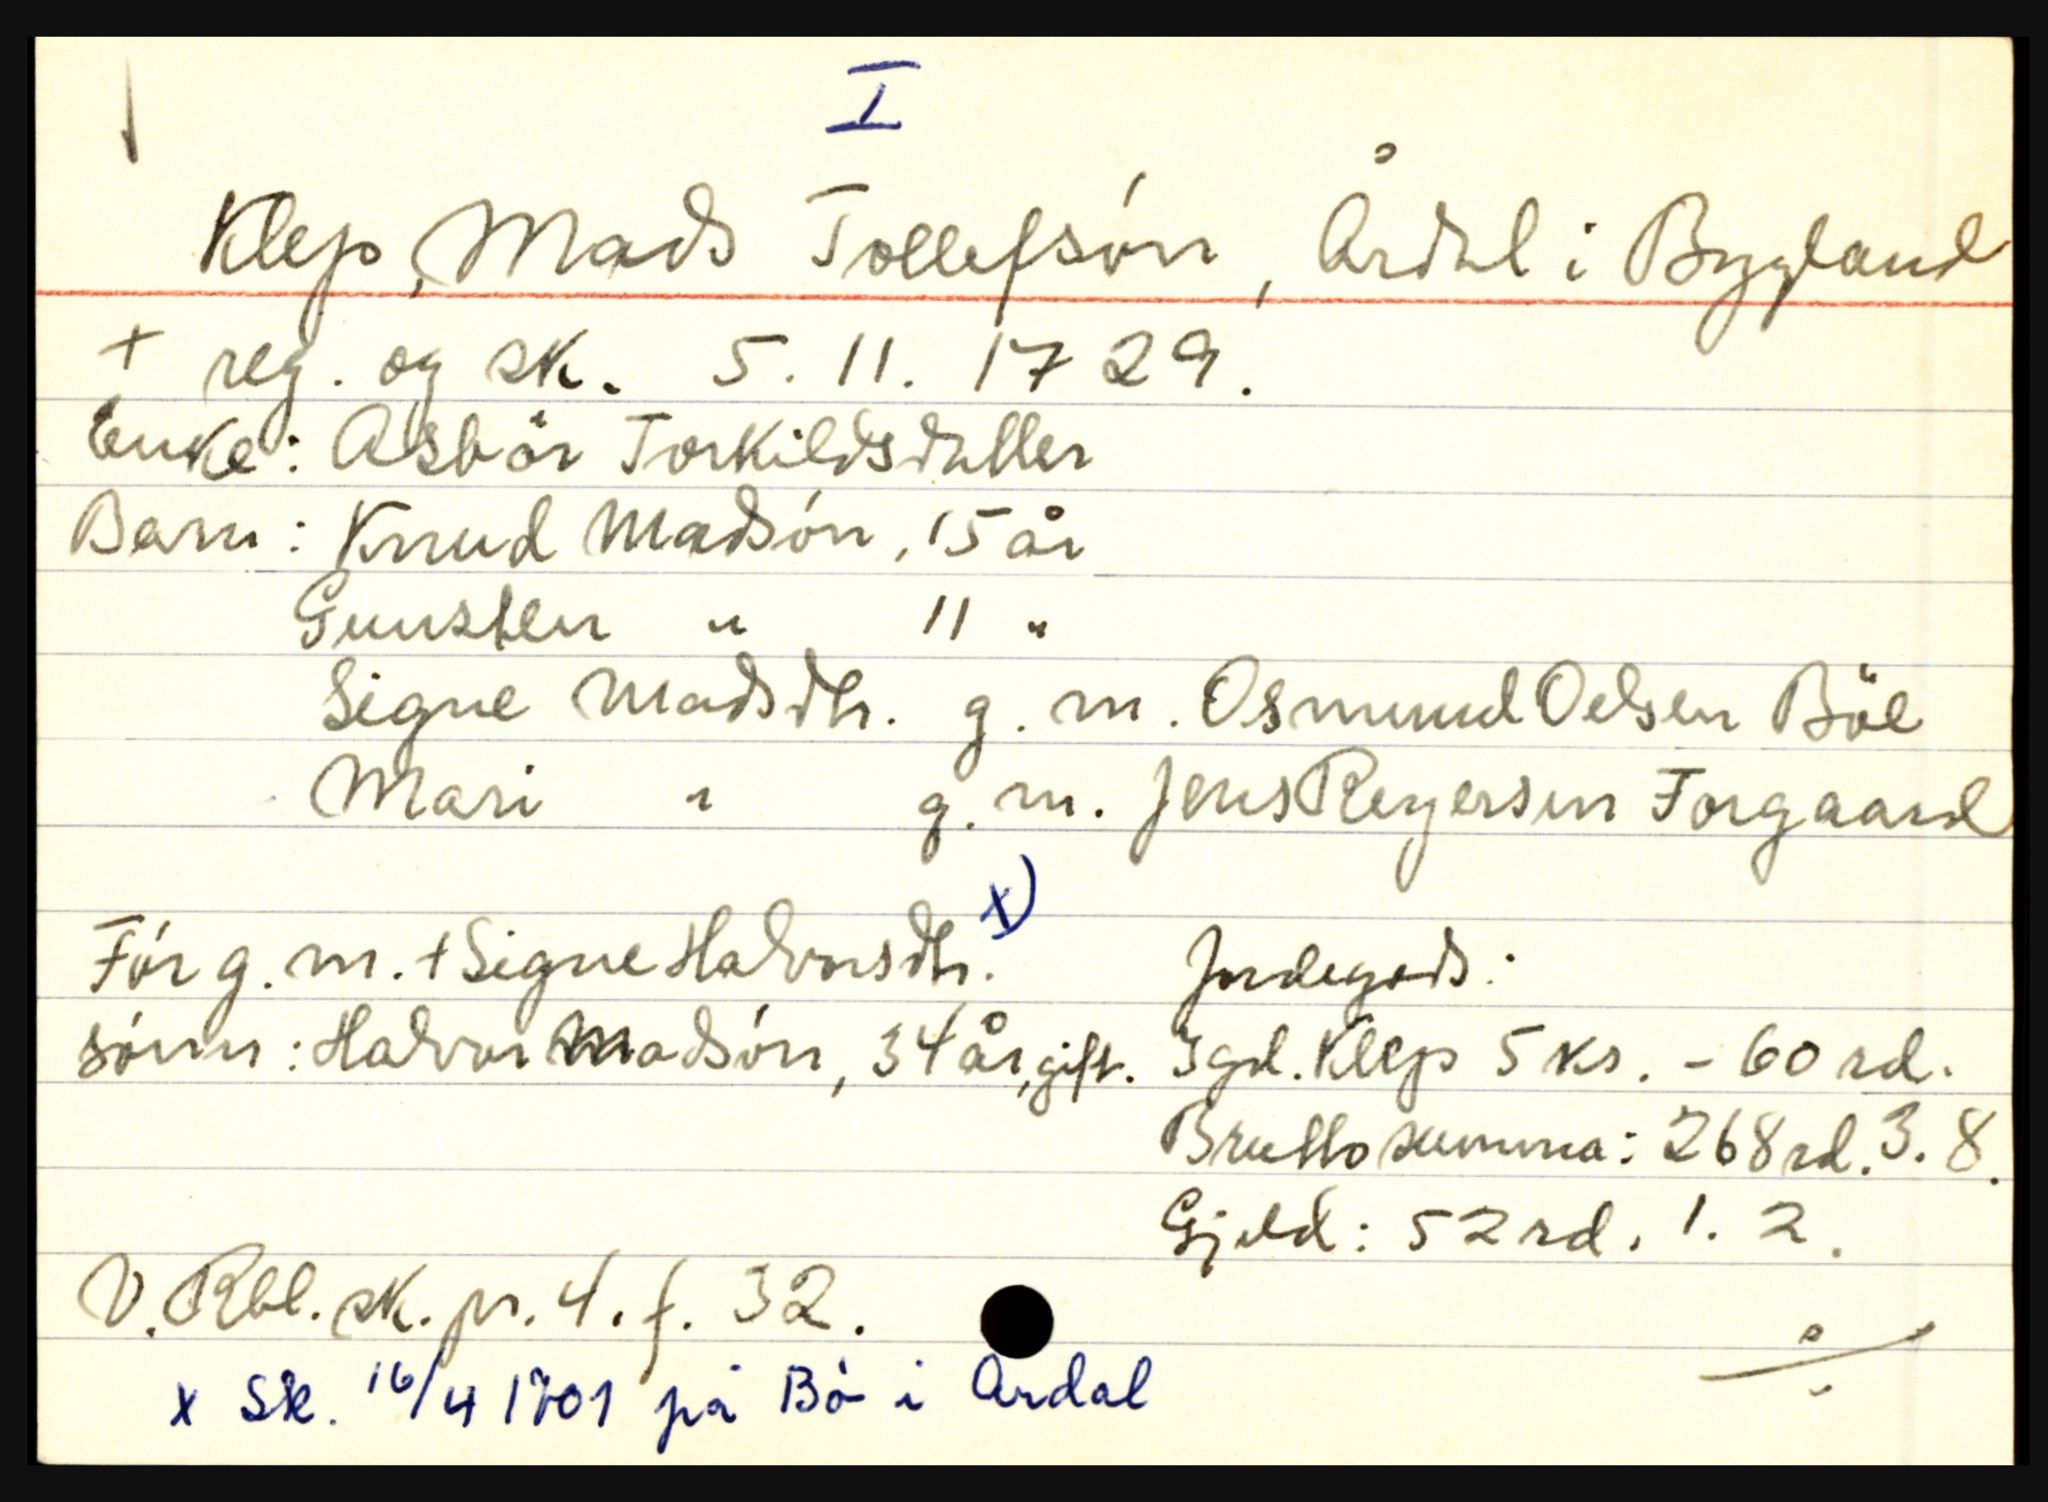 I
Klep, Mads Tollefsón, Årdal i Bygland
+ reg. og sk. 5. 11. 1729.
Enke: Asbör Torkildsdatter
Barn: Knud Madsón, 15 år
Gunsten " 11 "
Signe Madsdtr. g. m. Osmund Oelsen Böe
Mari " g. m. Jens Reyersen Forgaard
Fór g. m. + Signe Halvorsdtr. x)
sónn: Halvor Madsón, 34 år, gift.
Jordegods:
I gd. Klep 5 ks. - 60 rd.
Brutto summa: 268 rd. 3. 8.
Gjeld: 52 rd. 1. 2.
V. Rbl. sk. pr. 4. f. 32.
x Sk. 16/4 1701 på Bö i Årdal